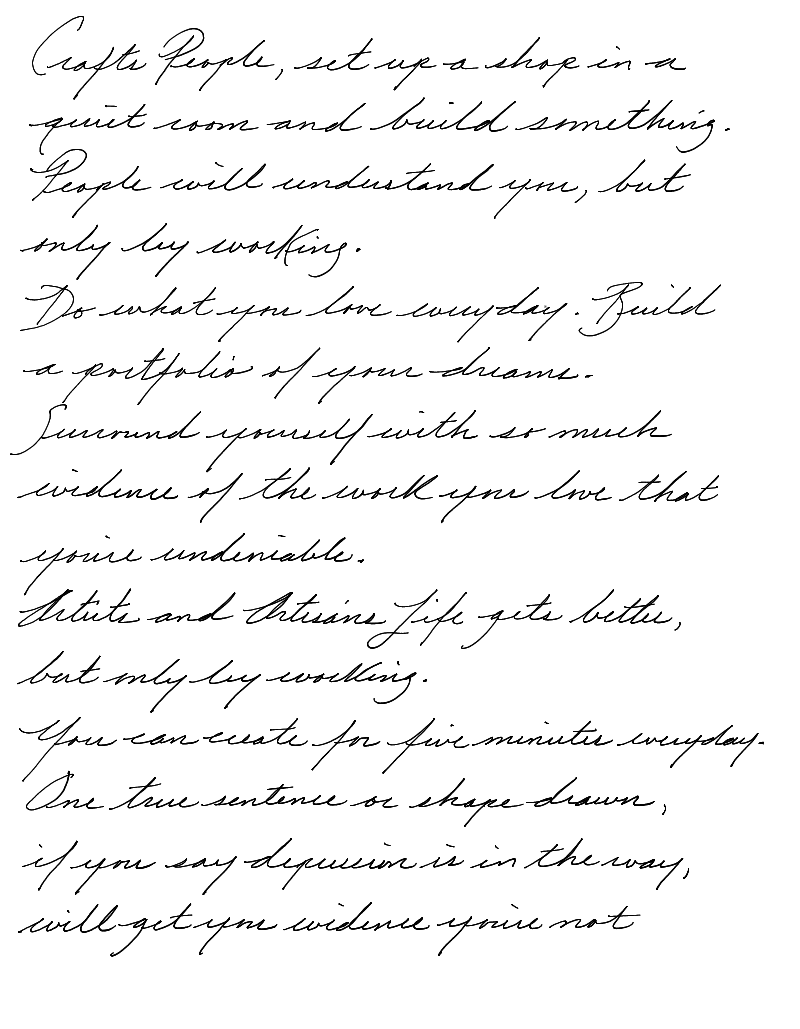 Crafts People, set up a shop in a
quiet room and build something.
People will understand you, but
only by working.
Do what you love everyday. Build
a portfolio of your dreams.
Surround yourself with so much
evidence of the work you love that
you're undeniable.
Artists and Artisans Life gets better,
but only by working.
You can create for five minutes everyday.
One true sentence or shape drawn,
if you say depression is in the way,
will get you evidence you're not